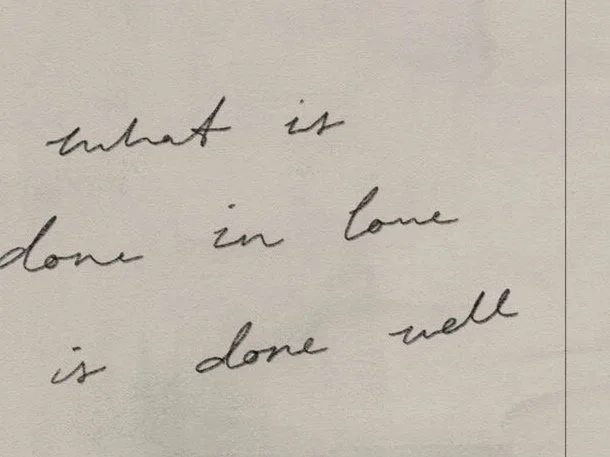 what is
done in love
is done well